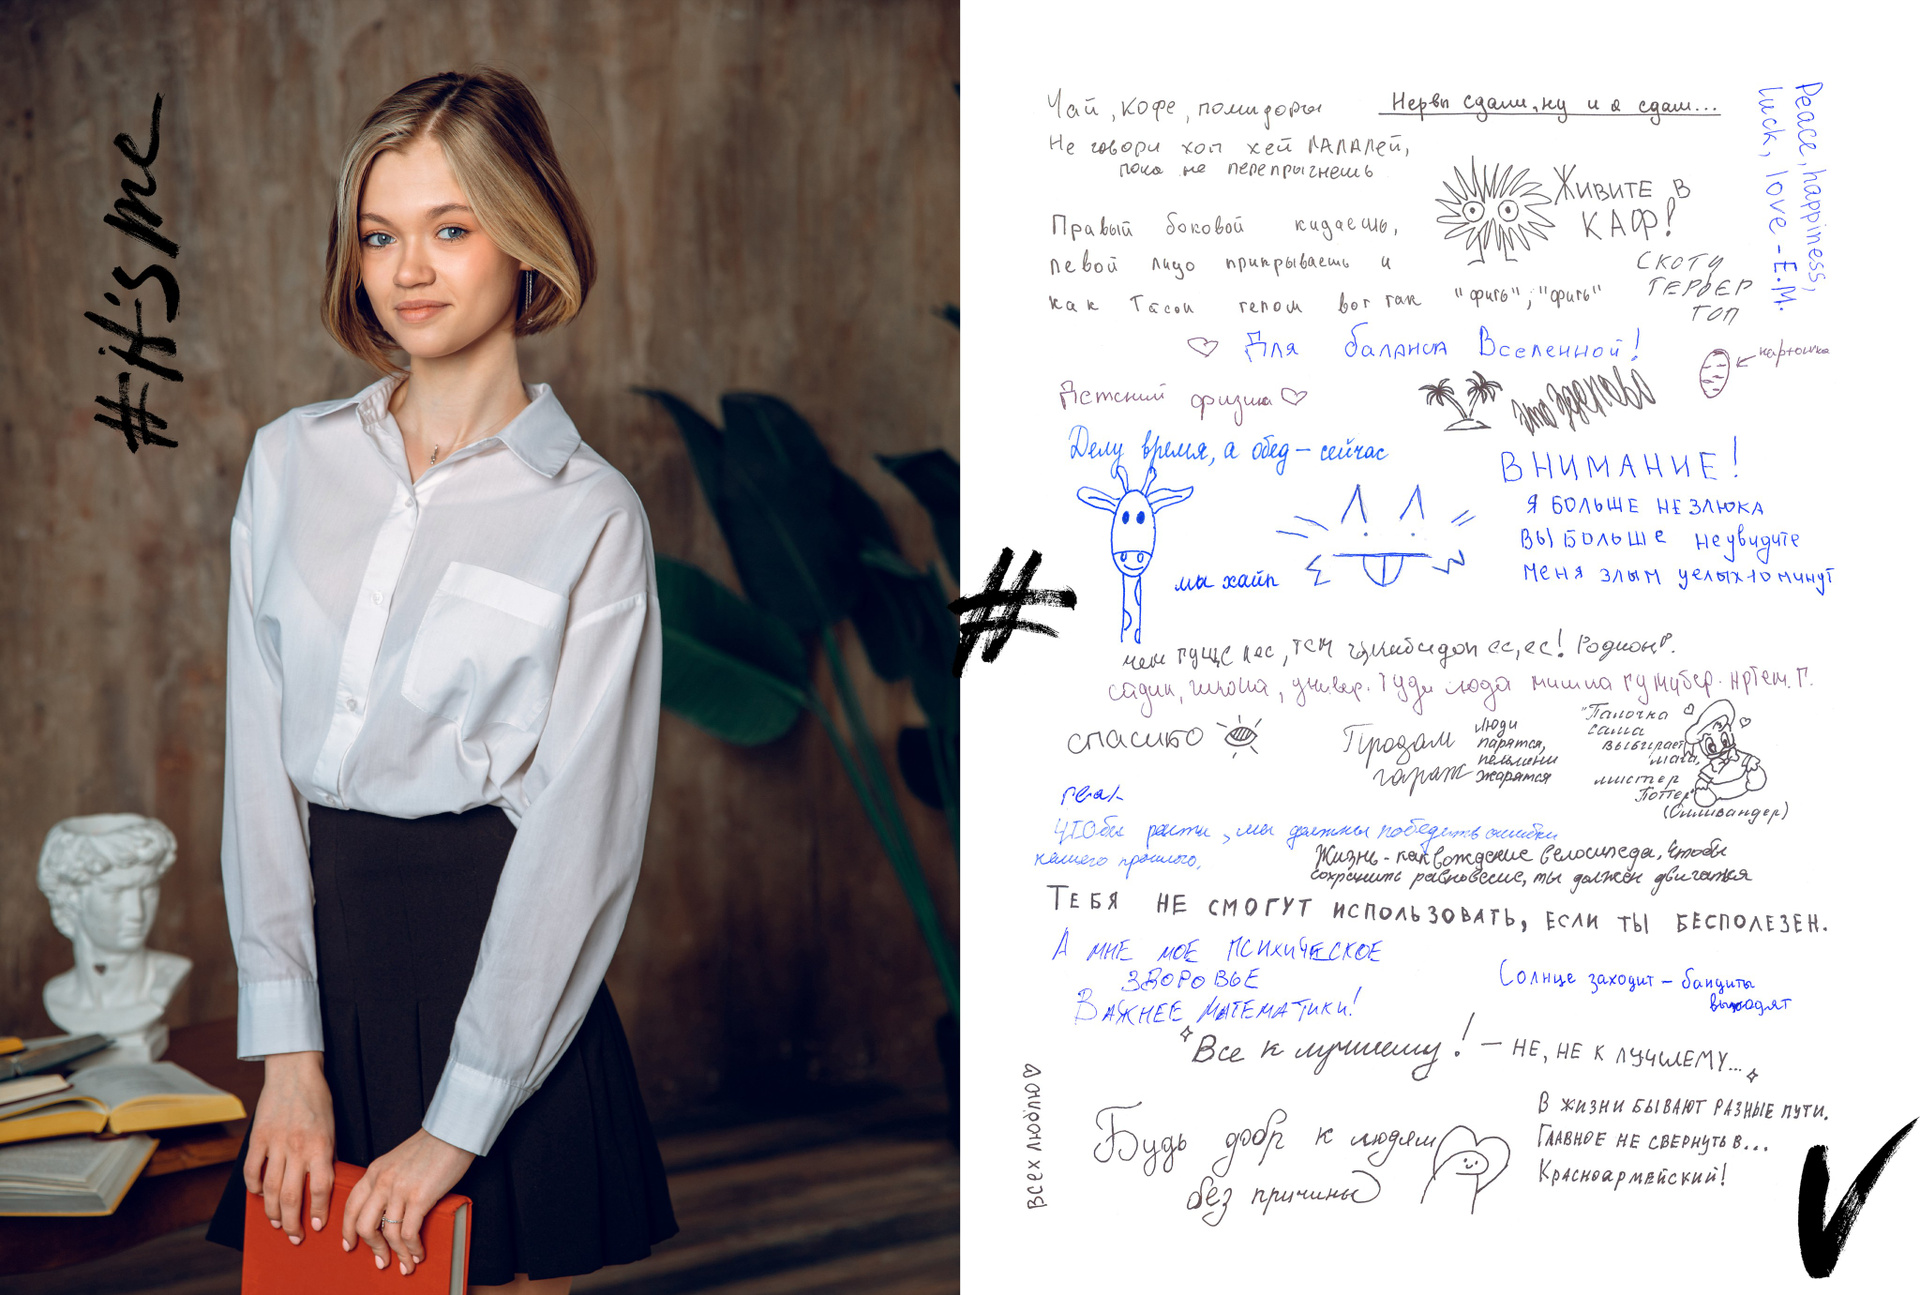 #it's me
Чай, кофе, помидоры
Нервы сдали, ну и я сдам...
Не говори хоп хей ЛАЛАЛЕЙ,
пока не перепрыгнешь
Peace, happiness,
luck, love - Е.М.
ЖИВИТЕ В
КАФ!
Правый боковой кидаешь,
левой лицо прикрываешь и
как Тасон телом вот так "фить", "фить"
СКОТЧ
ТЕРЬЕР
ТОП
Для баланса Вселенной!
картошка
Детский физика
это здорово
Делу время, а обед - сейчас
ВНИМАНИЕ!
Я БОЛЬШЕ НЕ ЗЛЮКА
ВЫ БОЛЬШЕ не увидите
меня злым целых 10 минут
мы хайп
#
чем гуще лес, тем ес, ес! Родион Р.
садик, школа, универ. Артем. Г.
спасибо
Продам
гараж
люди
парятся,
пельмени
жарятся
"Палочка
сама
выбирает
мага,
мистер
Поттер"
(Олливандер)
Чтобы расти, мы должны победить ошибки
нашего прошлого.
Жизнь - как вождение велосипеда. Чтобы
сохранить равновесие, ты должен двигаться
ТЕБЯ НЕ СМОГУТ ИСПОЛЬЗОВАТЬ, ЕСЛИ ТЫ БЕСПОЛЕЗЕН.
А МНЕ МОЕ ПСИХИЧЕСКОЕ
ЗДОРОВЬЕ
ВАЖНЕЕ МАТЕМАТИКИ!
Солнце заходит - бандиты
выходят
Все к лучшему! - НЕ, НЕ К ЛУЧШЕМУ...
ВСЕХ ЛЮБЛЮ
Будь добр к людям
без причины
В ЖИЗНИ БЫВАЮТ РАЗНЫЕ ПУТИ.
ГЛАВНОЕ НЕ СВЕРНУТЬ В...
Красноармейский!